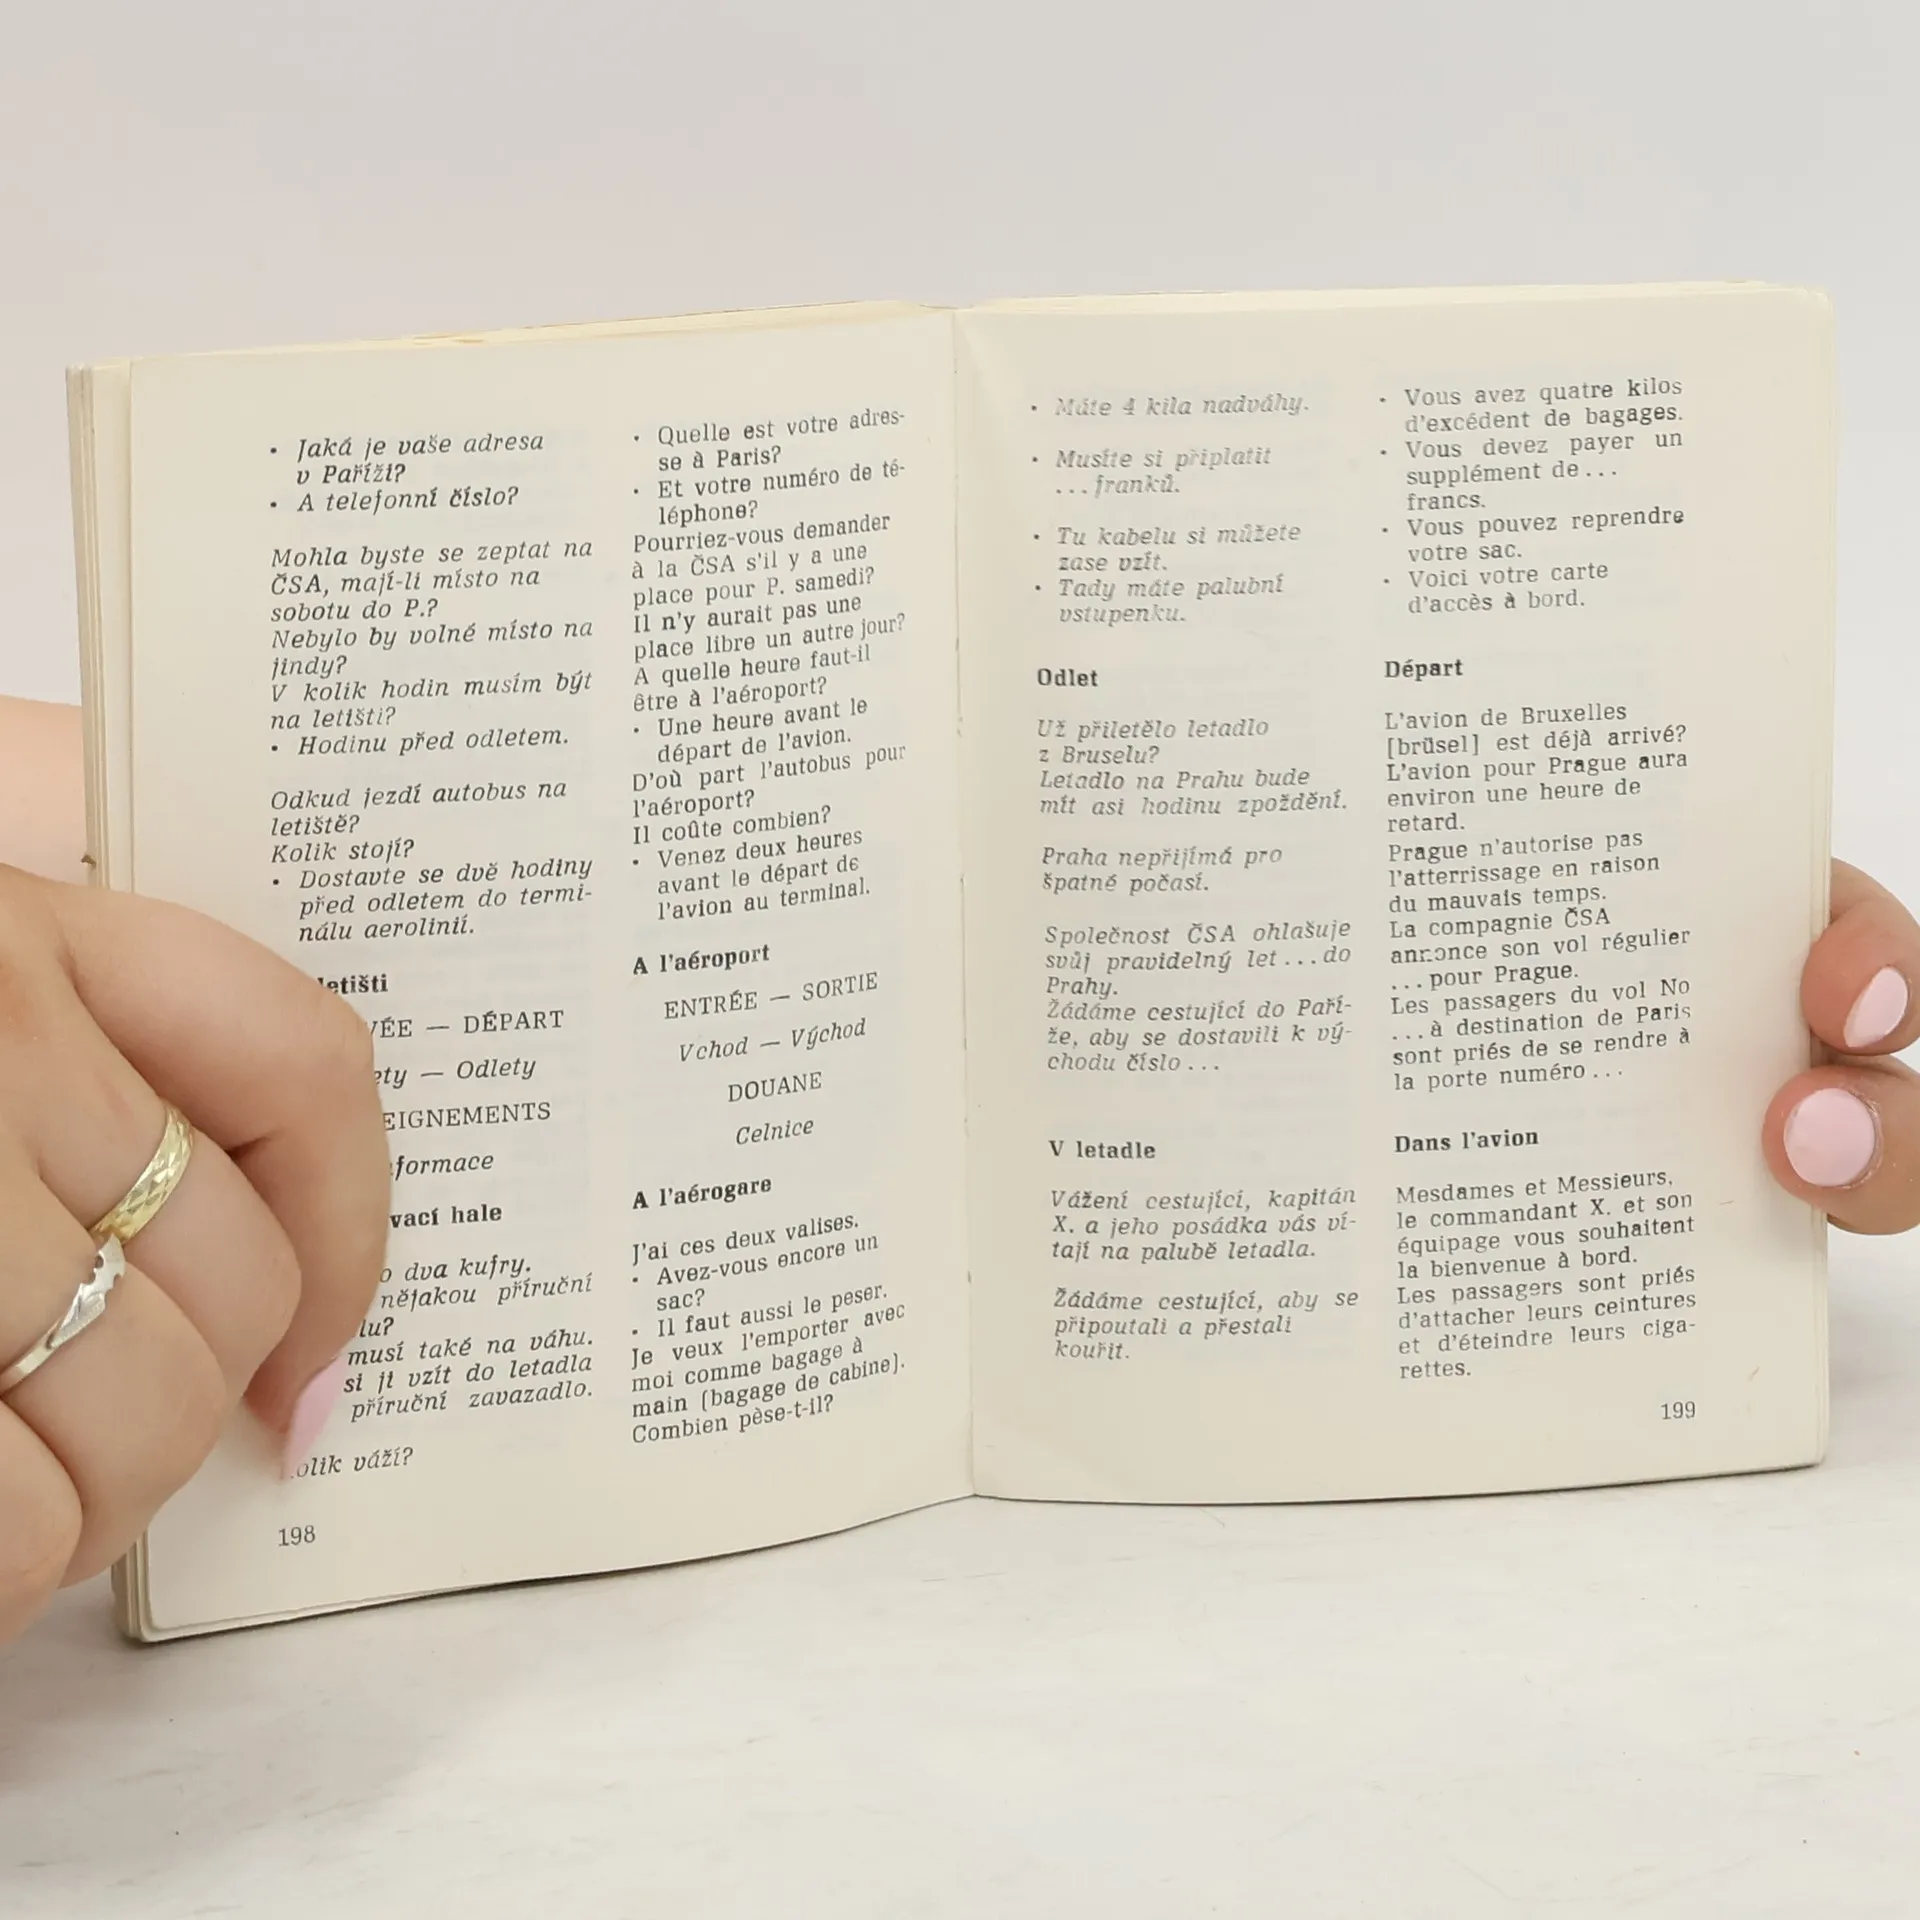 • Jaká je vaše adresa
v Paříži?
• A telefonní číslo?
Mohla byste se zeptat na
ČSA, mají-li místo na
sobotu do P.?
Nebylo by volné místo na
jindy?
V kolik hodin musím být
na letišti?
• Hodinu před odletem.
Odkud jezdí autobus na
letiště?
Kolik stojí?
• Dostavte se dvě hodiny
před odletem do termi-
nálu aerolinií.
letišti
VÉE — DÉPART
ety — Odlety
EIGNEMENTS
formace
vací hale
o dva kufry.
nějakou příruční
lu?
musí také na váhu.
si ji vzít do letadla
příruční zavazadlo.
olik váží?
198
• Quelle est votre adres-
se à Paris?
• Et votre numéro de té-
léphone?
Pourriez-vous demander
à la ČSA s'il y a une
place pour P. samedi?
Il n'y aurait pas une
place libre un autre jour?
A quelle heure faut-il
être à l'aéroport?
• Une heure avant le
départ de l'avion.
D'où part l'autobus pour
l'aéroport?
Il coûte combien?
• Venez deux heures
avant le départ de
l'avion au terminal.
A l'aéroport
ENTRÉE — SORTIE
Vchod — Východ
DOUANE
Celnice
A l'aérogare
J'ai ces deux valises.
• Avez-vous encore un
sac?
• Il faut aussi le peser.
Je veux l'emporter avec
moi comme bagage à
main (bagage de cabine).
Combien pèse-t-il?
• Máte 4 kila nadváhy.
• Musíte si připlatit
...franků.
• Tu kabelu si můžete
zase vzít.
• Tady máte palubní
vstupenku.
Odlet
Už přiletělo letadlo
z Bruselu?
Letadlo na Prahu bude
mít asi hodinu zpoždění.
Praha nepřijímá pro
špatné počasí.
Společnost ČSA ohlašuje
svůj pravidelný let ...do
Prahy.
Žádáme cestující do Paří-
že, aby se dostavili k vý-
chodu číslo...
V letadle
Vážení cestující, kapitán
X. a jeho posádka vás ví-
tají na palubě letadla.
Žádáme cestující, aby se
připoutali a přestali
kouřit.
• Vous avez quatre kilos
d'excédent de bagages.
• Vous devez payer un
supplément de...
francs.
• Vous pouvez reprendre
votre sac.
• Voici votre carte
d'accès à bord.
Départ
L'avion de Bruxelles
[brüsel] est déjà arrivé?
L'avion pour Prague aura
environ une heure de
retard.
Prague n'autorise pas
l'atterrissage en raison
du mauvais temps.
La compagnie ČSA
annonce son vol régulier
...pour Prague.
Les passagers du vol No
...à destination de Paris
sont priés de se rendre à
la porte numéro...
Dans l'avion
Mesdames et Messieurs,
le commandant X. et son
équipage vous souhaitent
la bienvenue à bord.
Les passagers sont priés
d'attacher leurs ceintures
et d'éteindre leurs ciga-
rettes.
199